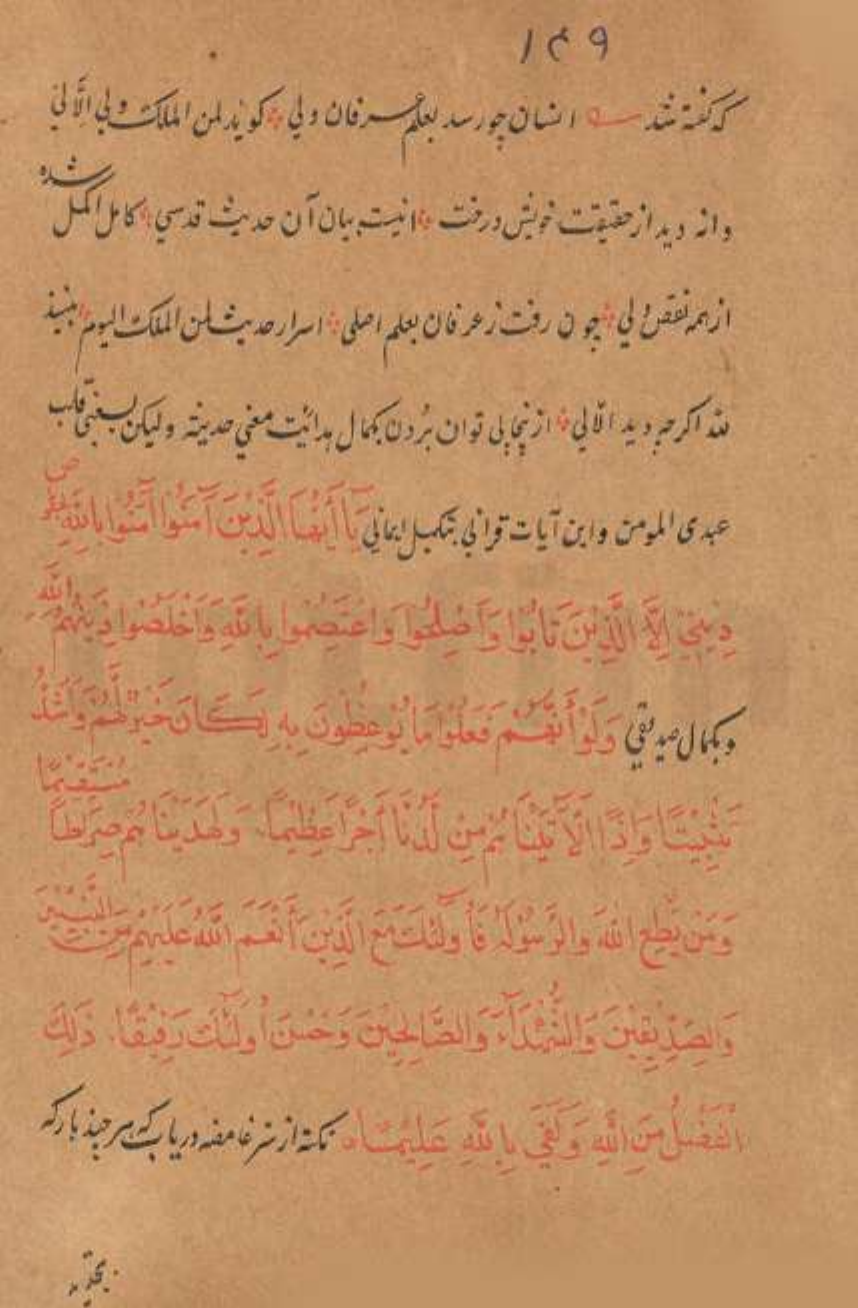 ۱۴۹
که گفته شد انسان چو رسد بعلم عرفان ولی کویند لمن الملک ولی الّا لی
وانه دید از حقیقت خویش درخت انیست بیان آن حدیث قدسی کامل اکمل شده
از همه نقص ولی چون رفت ز عرفان بعلم اصلی اسرار حدیث لمن الملک الیوم بنید
لله اکرچه دید الّا لی از ینجا پی توان بردن بکمال معنی حدیثه ولیکن یسعنی قلب
عبدی المومن و این آیات قرآنی بتکمیل ایمانی یَا أَیُّهَا الَّذِیْنَ آمَنُوا آمِنُوا بِاللّٰهِ
دِیْنِیْ اِلَّا الَّذِیْنَ تَابُوا وَاَصْلَحُوا وَاعْتَصَمُوا بِاللّٰهِ وَاَخْلَصُوا دِیْنَهُمْ لِلّٰهِ
و بکمال صدیقی وَلَوْ أَنَّهُمْ فَعَلُوْا مَا یُوْعَظُوْنَ بِهِ لَکَانَ خَیْرًا لَهُمْ وَاَشَدَّ
تَثْبِیْتًا وَاِذًا لَاٰتَیْنَاهُمْ مِنْ لَدُنَّا أَجْرًا عَظِیْمًا. وَلَهَدَیْنَاهُمْ صِرَاطًا مُسْتَقِیْمًا
وَمَنْ یُطِعِ اللّٰهَ وَالرَّسُوْلَ فَأُولٰئِکَ مَعَ الَّذِیْنَ أَنْعَمَ اللّٰهُ عَلَیْهِمْ مِنَ النَّبِیِّیْنَ
وَالصِّدِّیْقِیْنَ وَالشُّهَدَآءِ وَالصَّالِحِیْنَ وَحَسُنَ أُولٰئِکَ رَفِیْقًا. ذٰلِکَ
الْفَضْلُ مِنَ اللّٰهِ وَکَفَی بِاللّٰهِ عَلِیْمًا نکته از سر غامضه دریاب که هر چند بارکه